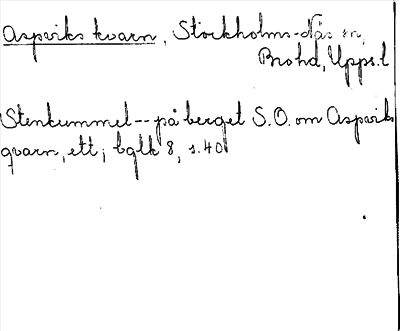 Aspviks kvarn, Stockholms-Näs sn,
Brohd, Upps. l
Stenkummel -- på berget S.O. om Aspviks
qvarn, ett; bglk 8, s. 40